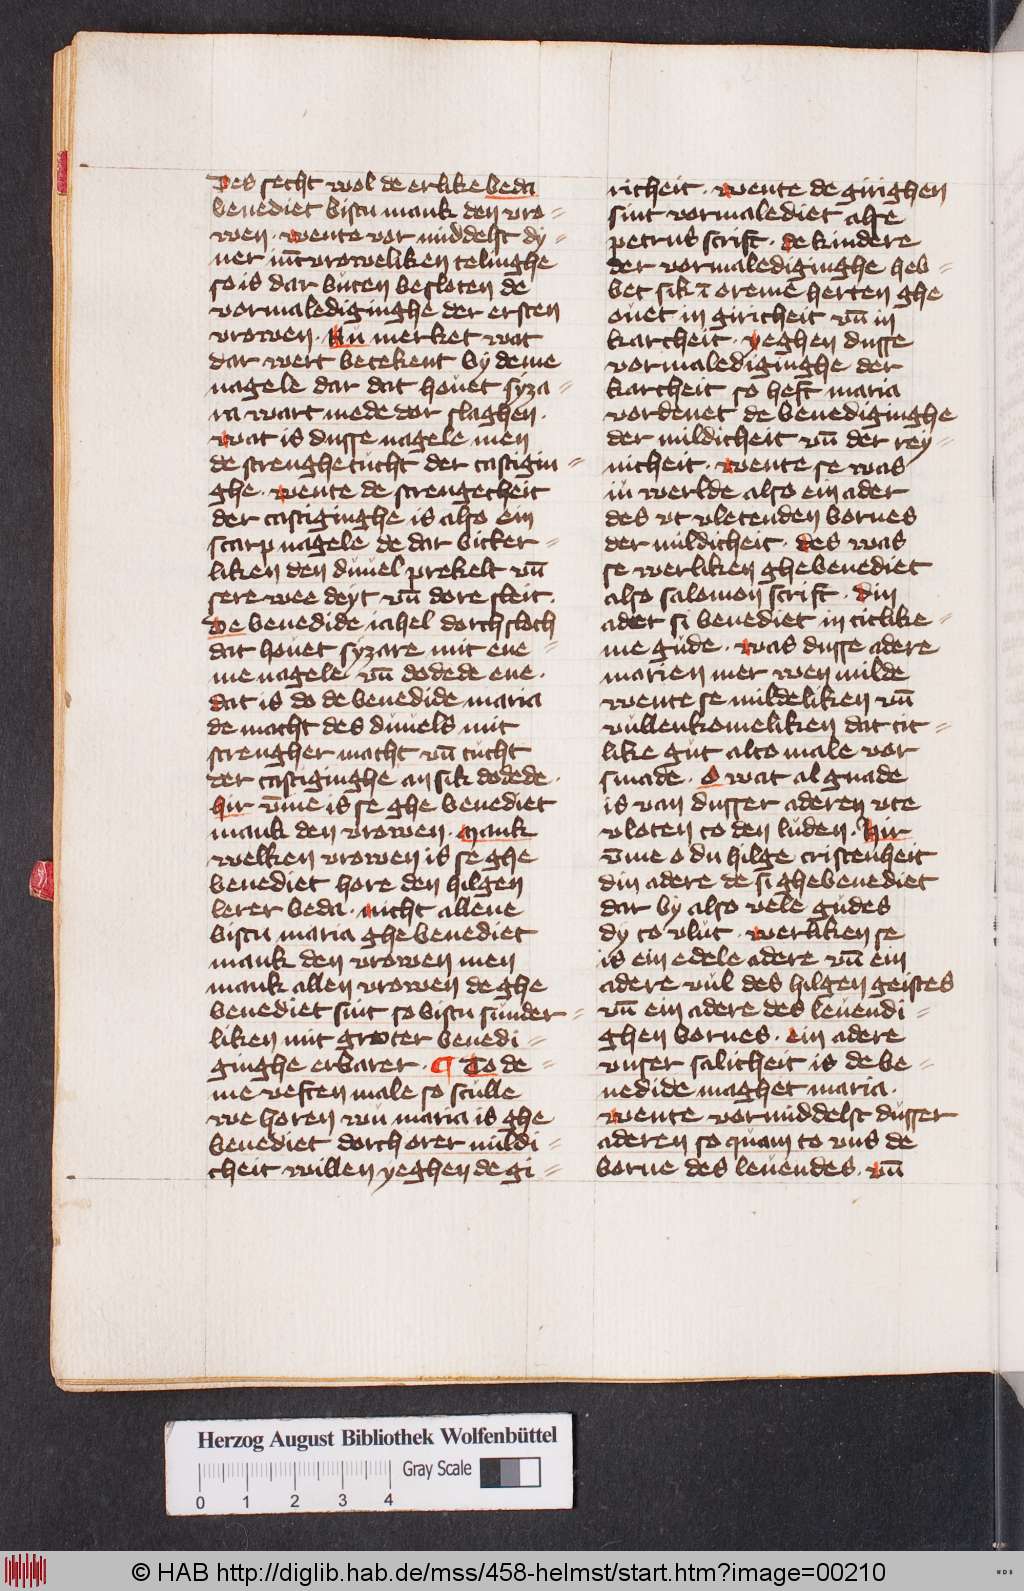 Des secht wol de erlike beda
benediet bistu mank den vro=
wen. wente vor middelst dy=
ner iuͥcvroweliken telinghe
so is dar buten besloten de
vormaledighinghe der ersten
vrowen. Nu merket wat
dar wert betekent by deme
nagele dar dat houet syza=
ra wart mede dor slaghen.
wat is dusse nagele men
de strenghe tucht der castigin=
ghe. wente de strengecheit
der castiginghe is also ein
scarp nagele de dar bicker=
liken den duuel prekelt vn̄
sere wee deyt vn̄ dore steit.
De benedide iahel dorch sloch
dat houet syzare mit ene=
me nagele vn̄ dodede ene.
dat is do de benedide maria
de macht des duuels mit
strengher macht vn̄ tucht
der castiginghe an sik dodede.
hir v̄me is se ghe benediet
mank den vrowen. mank
welken vrowen is se ghe
benediet hore den hilgen
lerer beda. nicht allene
bistu maria ghe benediet
mank den vrowen men
mank allen vrowen de ghe
benediet sint so bistu sunder=
liken mit groter benedi=
ginghe erbarer. ¶ To de=
me veften male so sculle
we horen wu maria is ghe
benediet dorch orer mildi=
cheit willen yeghen de gi=
richeit. wente de girighen
sint vormalediet alse
petrus scrift. de kindere
der vormalediginghe heb=
bet sik ī oreme herten ghe
ouet in giricheit vn̄ in
karcheit. yeghen dusse
vormalediginghe der
karcheit so heft maria
vordenet de benediginghe
der mildicheit vn̄ der rey=
nicheit. wente se was
in werlde also ein ader
des vt vletenden bornes
der mildicheit. des was
se werliken ghebenediet
also salomon scrift. din
ader si benediet in titlike=
me gude. was dusse adere
marien mer wen milde
wente se mildeliken vn̄
vullenkomeliken dat tit=
like gut alto male vor
smade. O wat al gnade
is van dusser aderen vte
vloten to den luden. Hir
v̄me o du hilge cristenheit
din adere de si ghebenediet
dar by also vele gudes
dy to vlut. werliken se
is ein edele adere vn̄ ein
adere vul des hilgen geistes
vn̄ ein adere des leuendi=
ghen bornes. ein adere
vnser salicheit is de be=
nedide maghet maria.
wente vormiddelst dusser
aderen so quam to vns de
borne des leuendes. vn̄
Herzog August Bibliothek Wolfenbüttel
Gray Scale
0 1 2 3 4
© HAB http://diglib.hab.de/mss/458-helmst/start.htm?image=00210